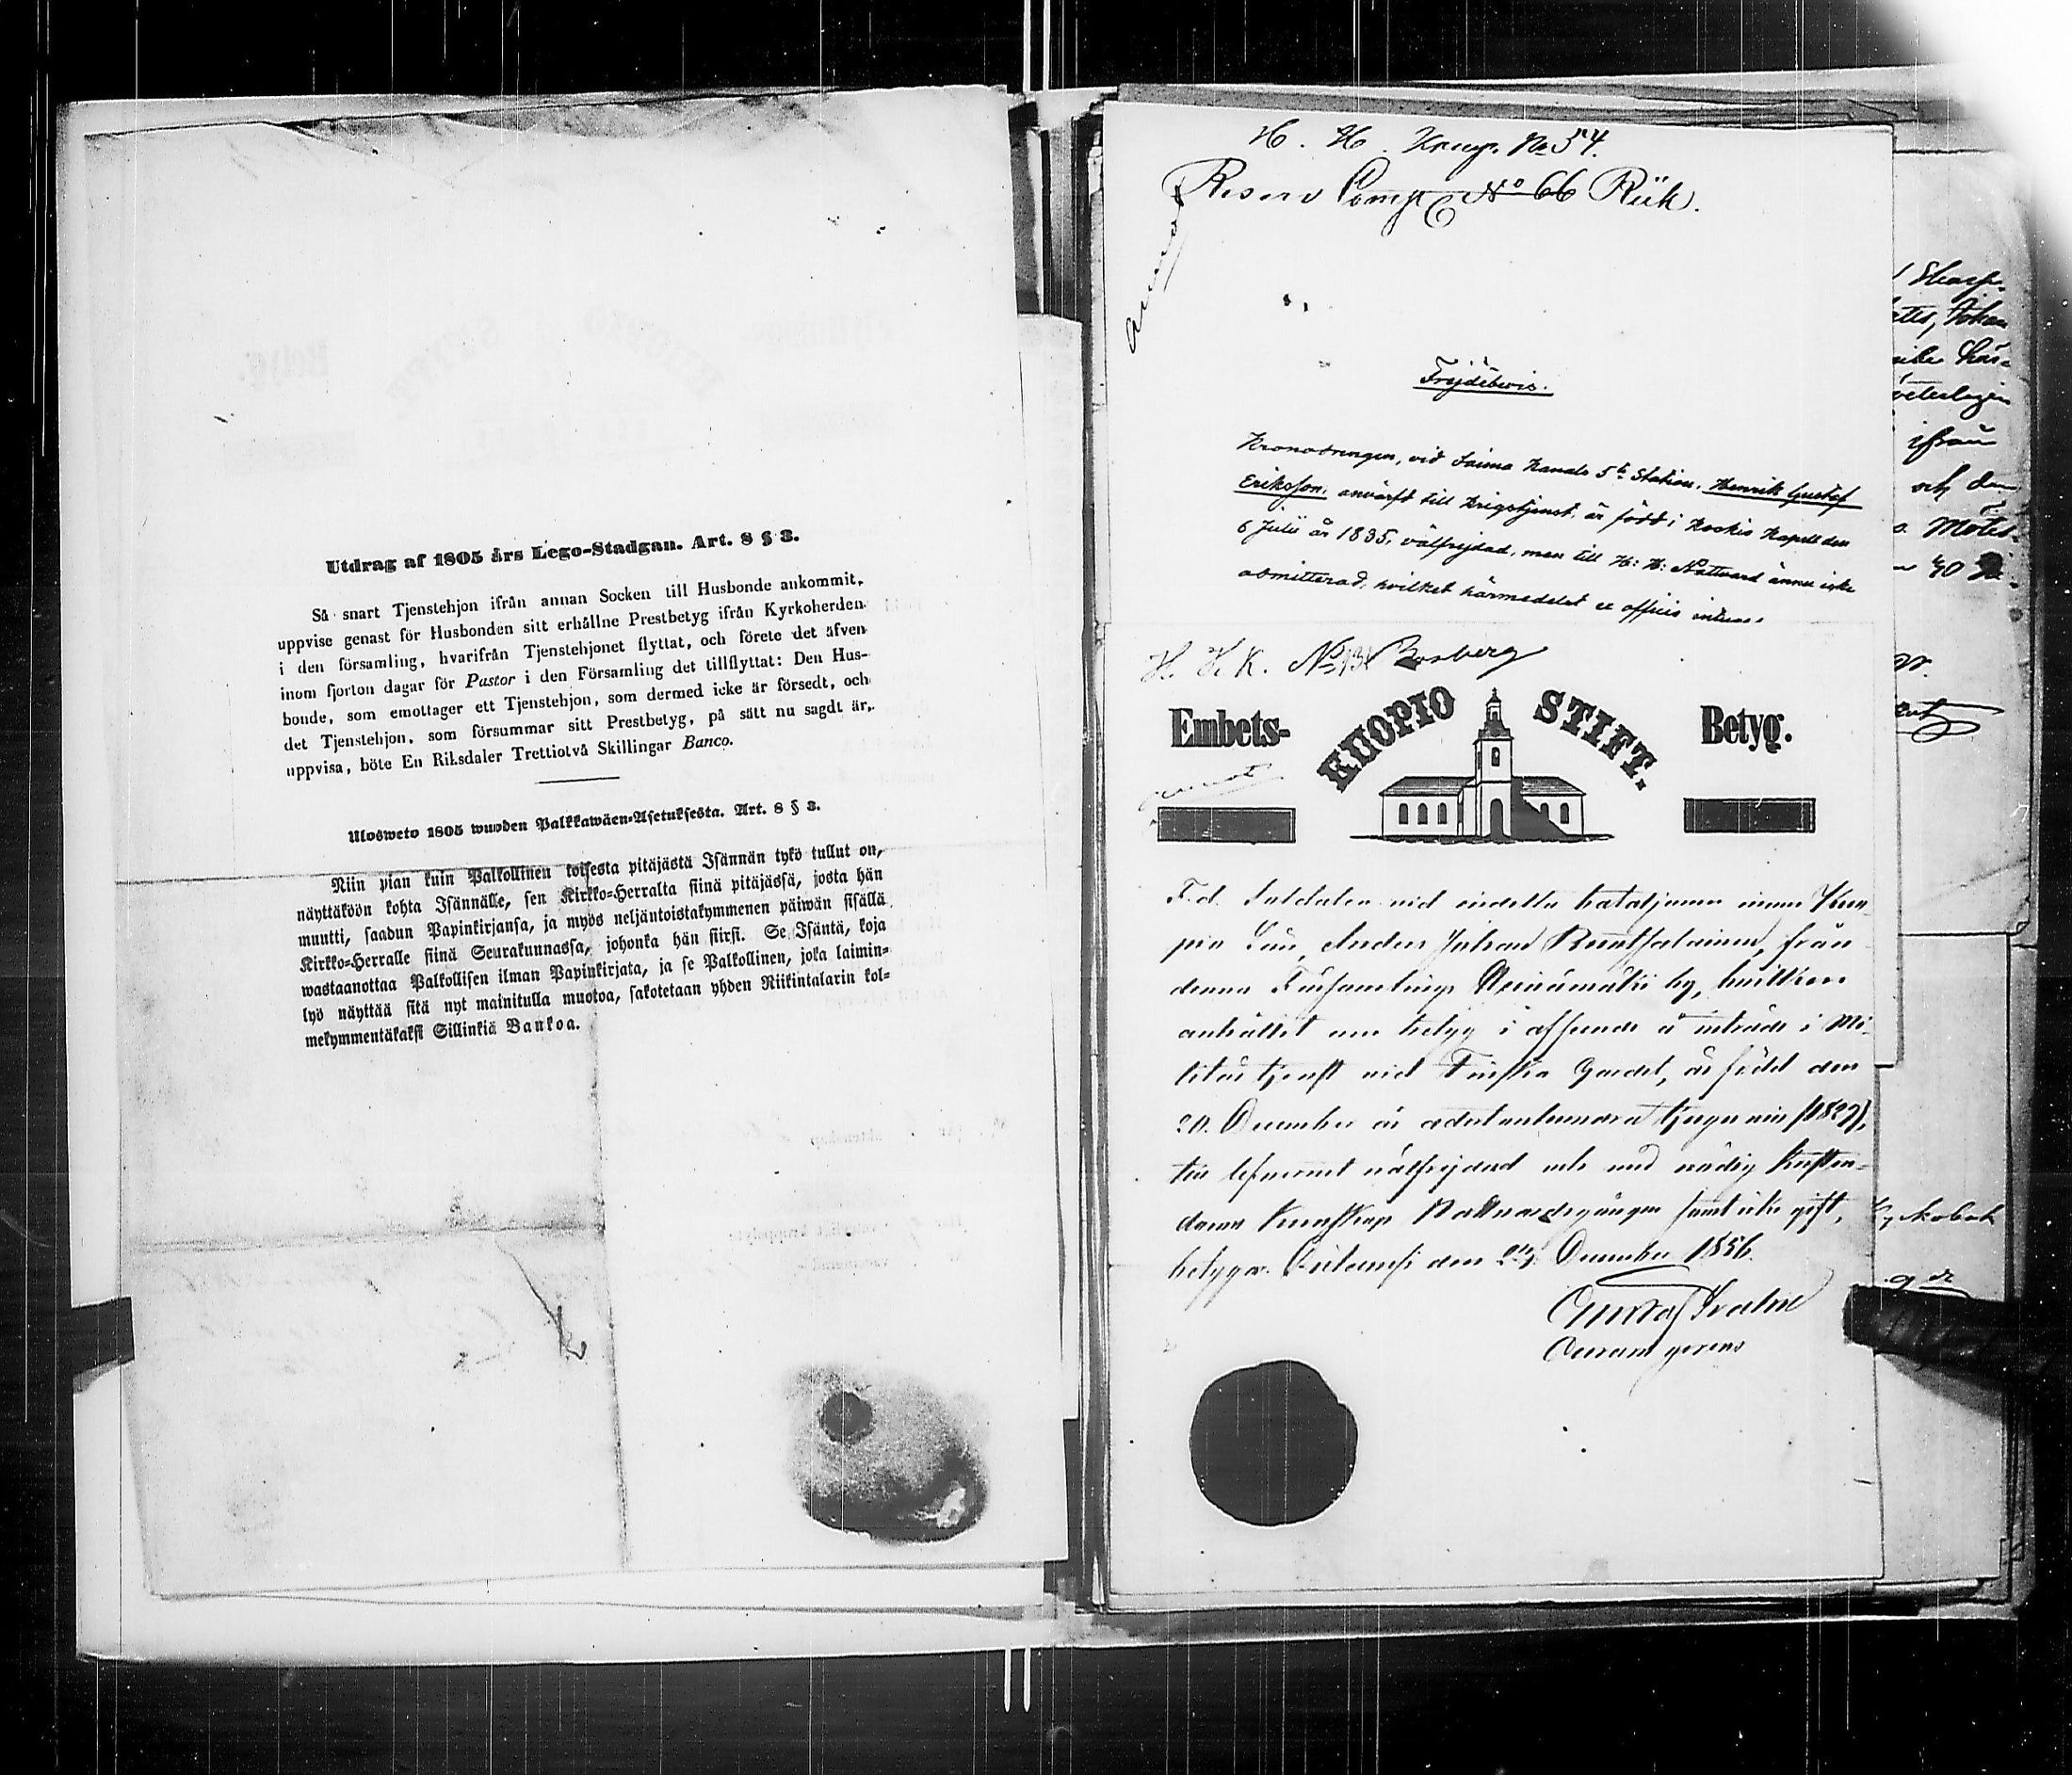 Utdrag af 1805 års Lego-Stadgan. Art. 8 § 3.
Så snart Tjenstehjon ifrån annan Socken till Husbonde ankommit,
uppvise genast för Husbonden sitt erhållne Prestbetyg ifrån Kyrkoherden
i den församling, hvarifrån Tjenstehjonet flyttat, och förete det äfven
inom fjorton dagar för Pastor i den Församling det tillflyttat: Den Hus-
bonde, som emottager ett Tjenstehjon, som dermed icke är försedt, och
det Tjenstehjon, som försummar sitt Prestbetyg, på sätt nu sagdt är,
uppvisa, böte En Riksdaler Trettiotvå Skillingar Banco.
Ulosweto 1805 wuoden Palkkawäen-Asetuksesta. Art. 8 § 3.
Niin pian kuin Palkollinen toisesta pitäjästä Isännän tykö tullut on,
näyttäköön kohta Isännälle, sen Kirkko-Herralta siinä pitäjässä, josta hän
muutti, saadun Papinkirjansa, ja myös neljäntoistakymmenen päiwän sisällä
Kirkko-Herralle siinä Seurakunnassa, johonka hän siirsi. Se Isäntä, koja
wastaanottaa Palkollisen ilman Papinkirjata, ja se Palkollinen, joka laimin-
lyö näyttää sitä nyt mainitulla muotoa, sakotetaan yhden Riikintalarin kol-
mekymmentäkaksi Sillinkiä Bankoa.
H. H. Komp. No 54.
Reserv Comp No 66 Rük.
Frejdebevis.
Kronodrengen, vid Saima Kanals 5te Station, Henrik Gustaf
Eriksson, anvärfd till Krigstjenst, är född i Koskis Kapell den
6 Julii år 1835, välfrejdad, men till H: H: Nattvard ännu icke
admitterad, hvilket härmedelst ex officio intygas.
H. H. K. No Borberg
Embets- KUOPIO STIFT. Betyg.
F.d. Soldaten vid indelta bataljonen inom Kuo-
pio Län, Anders Johan, från
denna Församlings by, hvilken
anhållit om betyg i afseende å inträde i Mi-
litärtjenst vid Finska Gardet, är född den
20. December år adertonhundra tjugu nio (1829),
till lefvernet välfrejdad och med nödig Kristen-
doms kunskap Nattvardsgången samt icke gift,
betygar. den December 1856.
Gustaf
Curam gerens
ifrån
och den